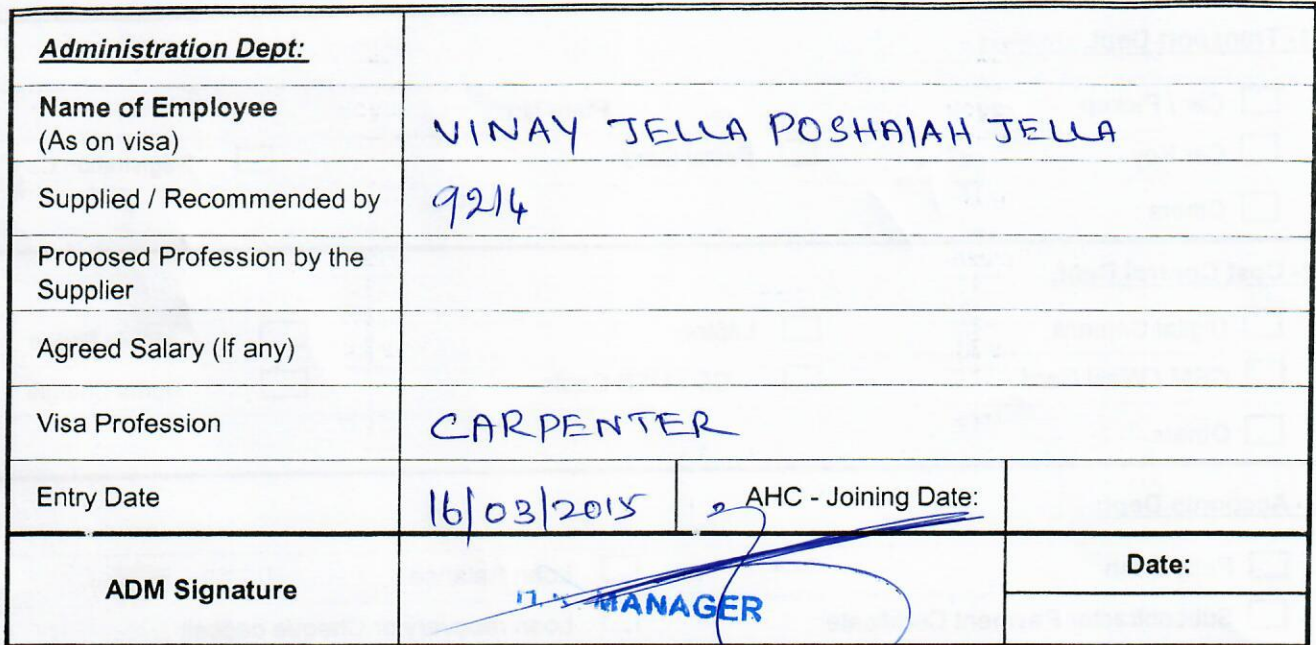 Administration Dept:
Name of Employee
(As on visa)
VINAY JELLA POSHAIAH JELLA
Supplied / Recommended by
9214
Proposed Profession by the
Supplier
Agreed Salary (If any)
Visa Profession
CARPENTER
Entry Date
16/03/2015
AHC - Joining Date:
ADM Signature
MANAGER
Date: